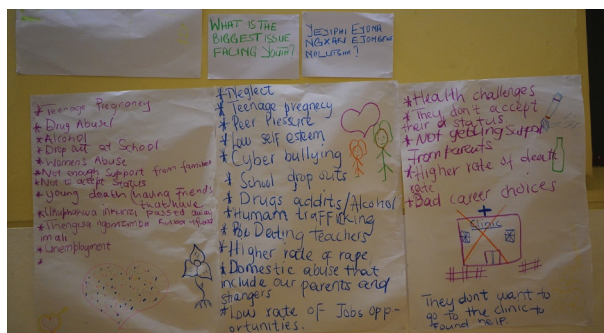 WHAT IS THE
BIGGEST ISSUE
FACING Youth?
YEYIPHI EYONA
NGXAKI EJONGENE
NOLUTSHA?
*Teenage Pregnancy
*Drug Abuse
*Alcohol
*Drop out at School
*Women's Abuse
*Not enough Support from families
*Not to accept Status
*Young death (having friends
that have
passed away
imali
*Unemployment
*
*Neglect
*Teenage pregnecy
*Peer Pressure
*Low self esteem
*Cyber bullying
School drop outs
*Drugs addits/Alcohol
*Human trafficking
Dating teachers
*Higher rate of rape
*Domestic abuse that
include our parents and
strangers
*Low rate of Jobs opp-
ortunities.
*Health challenges
*They don't accept
their status
*Not getting support
From parents
*Higher rate of death
rate
*Bad career choices
Clinic
They dont want to
go to the clinic to
found help.